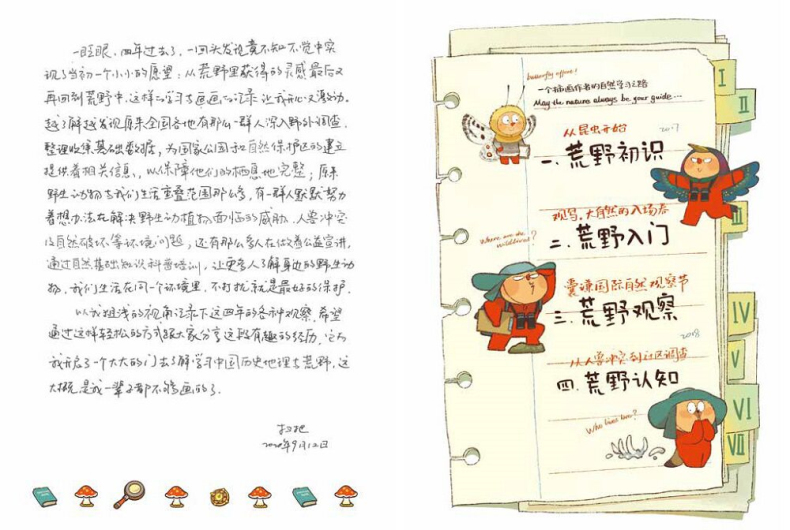 一眨眼，四年过去了，一回头发现竟不知不觉中实
现了当初一个小小的愿望：从荒野里获得的灵感最后又
再回到荒野中。这样一路学习去画画去记录 让我开心又激动。
越了解越发现原来全国各地有那么一群人深入野外调查，
整理收集基础数据，为国家公园和自然保护区的建立
提供着相关信息，以保障他们的栖息地完整；原来
野生动物与我们生活重叠范围那么多，有一群人默默努力
着想办法在解决野生动植物面临的威胁、人兽冲突
及自然破坏等环境问题；还有那么多人在做着公益宣讲，
通过自然基础知识科普培训，让更多人了解身边的野生动
物。我们生活在同一个环境里，不打扰就是最好的保护。
以我粗浅的视角记录下这四年的各种观察，希望
通过这样轻松的方式跟大家分享这段有趣的经历。它为
我开启了一个大大的门去了解学习中国历史地理与荒野，这
大概是我一辈子都不够画的了。
2020年9月12日
butterfly effect!
一个插画作者的自然学习之路
May the nature always be your guide...
从昆虫开始 2017
一. 荒野初识
观鸟，大自然的入场卷
Where are the wildlives?
二. 荒野入门
囊谦国际自然观察节
三. 荒野观察
2018
从人兽冲突到社区调查
四. 荒野认知
Who lives here?
I
II
III
IV
V
VI
VII